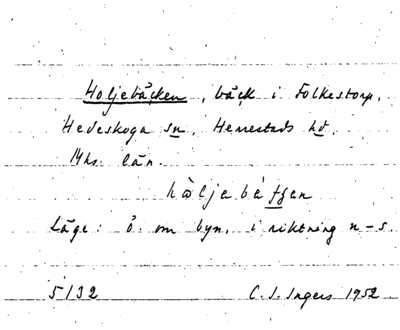 Holjebäcken, bäck i Folkestorp,
Hedeskoga sn, Herrestads hd,
Mhs. län.
hòljebétjen
Läge: ö. om byn, i riktning n-s.
5132 C. I. Ingers 1952